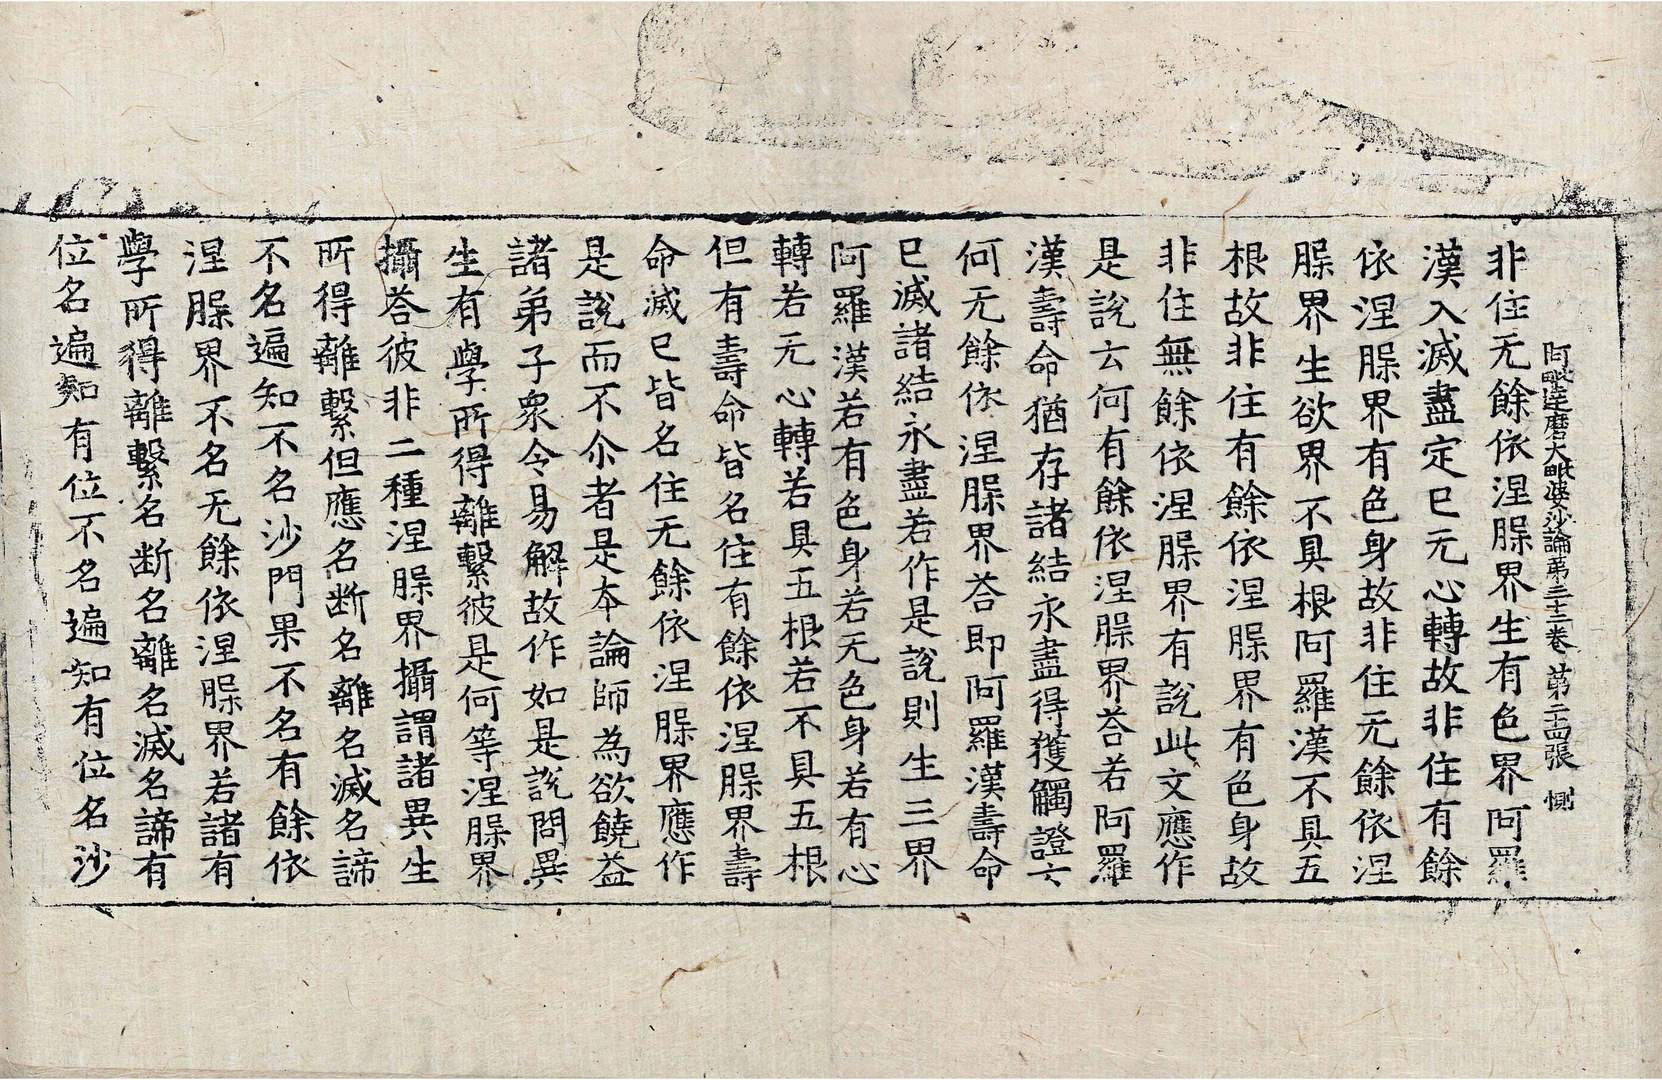 阿毗達磨大毗婆沙論第三十三卷 第二十四張 惻
非住无餘依涅䏶界生有色界阿羅
漢入滅盡定已无心轉故非住有餘
依涅䏶界有色身故非住无餘依涅
䏶界生欲界不具根阿羅漢不具五
根故非住有餘依涅䏶界有色身故
非住無餘依涅䏶界有說此文應作
是說云何有餘依涅䏶界荅若阿羅
漢壽命猶存諸結永盡得獲觸證云
何无餘依涅䏶界荅即阿羅漢壽命
已滅諸結永盡若作是說則生三界
阿羅漢若有色身若无色身若有心
轉若无心轉若具五根若不具五根
但有壽命皆名住有餘依涅䏶界壽
命滅已皆名住无餘依涅䏶界應作
是說而不尒者是夲論師為欲饒益
諸弟子衆令易解故作如是說問異
生有學所得離繫彼是何等涅䏶界
攝荅彼非二種涅䏶界攝謂諸異生
所得離繫但應名断名離名滅名諦
不名遍知不名沙門果不名有餘依
涅䏶界不名无餘依涅䏶界若諸有
學所得離繫名断名離名滅名諦有
位名遍知有位不名遍知有位名沙